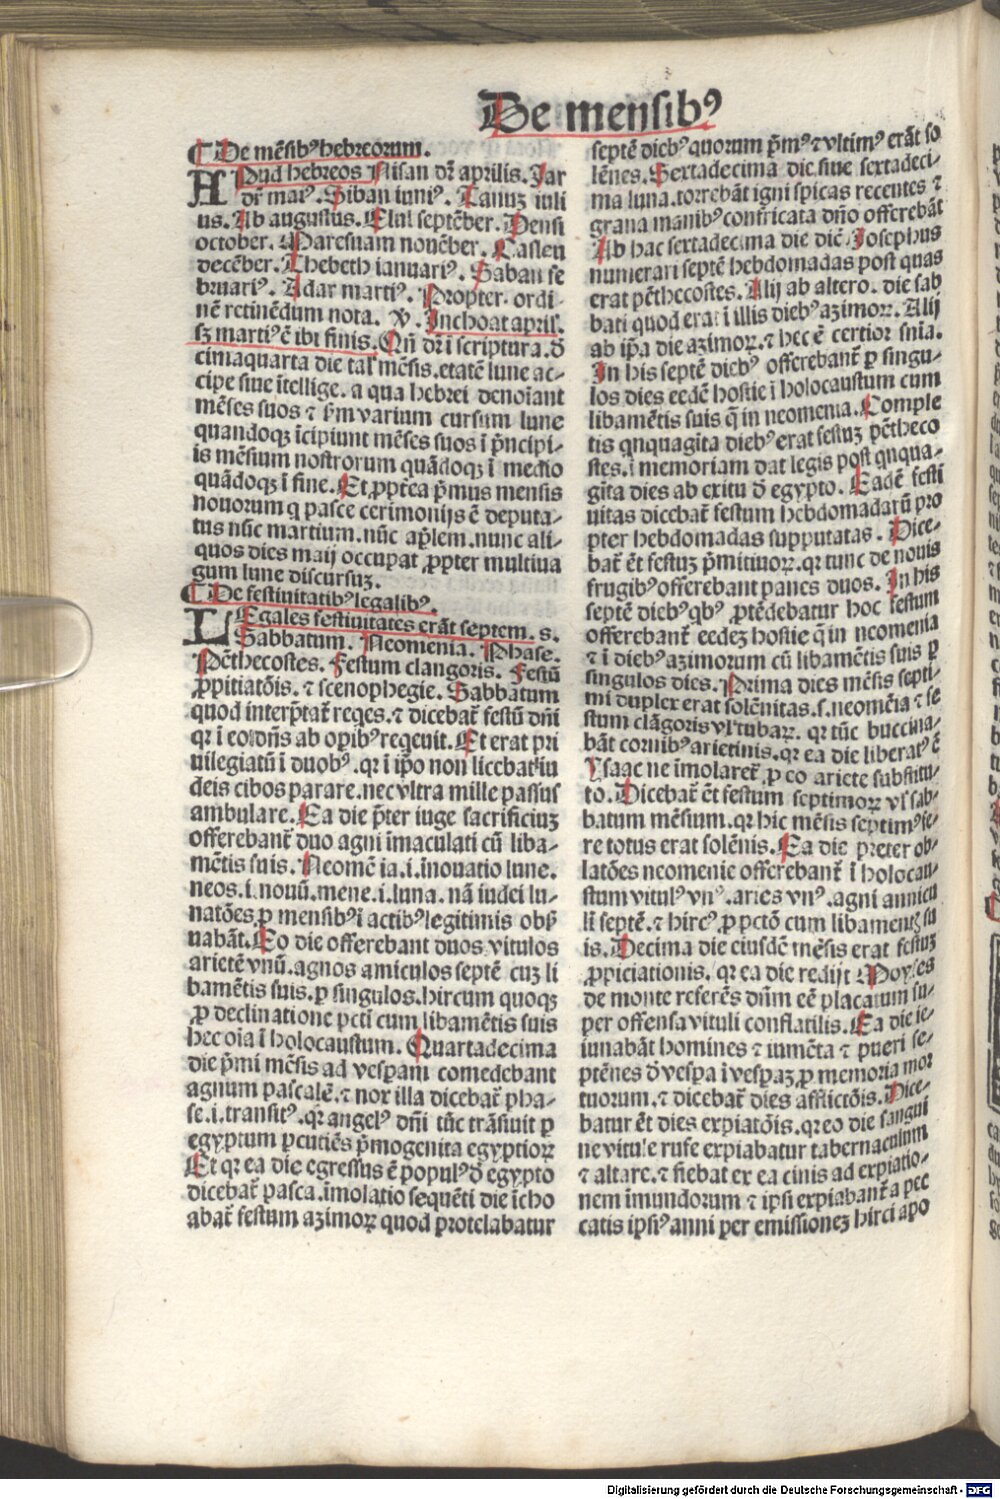 De mensibꝰ
¶ De mẽsibꝰ hebreorum.
APud hebreos Nisan dr̃ aprilis. Jar
dr̃ maiꝰ. Siban iuniꝰ. Tanuz iuli
us. Ab augustus. Elul septẽber. Densi
october. Maresuam nouẽber. Casleu
decẽber. Thebeth ianuariꝰ. Saban fe
bruariꝰ. Adar martiꝰ. Propter ordi⸗
nẽ retinẽdum nota. V. Inchoat april'.
sꝫ martiꝰ ẽ ibi finis. Qñ dr̃ ĩ scriptura. d̕
cimaquarta die tal' mẽsis. etatẽ lune ac⸗
cipe siue ĩtellige. a qua hebrei denoĩant
mẽses suos ⁊ s̃m varium cursum lune
quandoqꝫ ĩcipiunt mẽses suos ĩ p̃ncipi⸗
is mẽsium nostrorum quãdoqꝫ ĩ medio
quãdoqꝫ ĩ fine. Et ꝓpt̃ea p̃mus mensis
nouorum q pasce cerimonijs ẽ deputa⸗
tus nũc martium. nũc apⁱlem. nunc ali⸗
quos dies maij occupat ꝓpter multiua
gum lune discursuꝫ.
¶ De festiuitatibꝰ legalibꝰ.
LEgales festiuitates erãt septem. s.
Sabbatum. Neomenia. Phase.
Pẽthecostes. Festum clangoris. Festũ
ꝓpitiatõis. ⁊ scenophegie. Sabbatum
quod interp̃tat̃ reqes. ⁊ dicebat̃ festũ dñi
qr ĩ eo dñs ab opibꝰ reqeuit. Et erat pri
uilegiatũ ĩ duobꝰ. qr ĩ ip̃o non licebat iu
deis cibos parare. nec vltra mille passus
ambulare. Ea die p̃ter iuge sacrificiuꝫ
offerebant̃ duo agni ĩmaculati cũ liba⸗
mẽtis suis. Neomẽia. i. ĩnouatio lune.
neos. i. nouũ. mene. i. luna. nã iudei lu⸗
natões ꝑ mensibꝰ ĩ actibꝰ legitimis obſ̕
uabãt. Eo die offerebant duos vitulos
arietẽ vnũ. agnos amiculos septẽ cuꝫ li
bamẽtis suis. ꝑ singulos. hircum quoqꝫ
ꝓ declinatione pcti cum libamẽtis suis
hec oĩa ĩ holocaustum. Quartadecima
die p̃mi mẽsis ad vesꝑam comedebant
agnum pascalẽ. ⁊ nox illa dicebat̃ pha⸗
se. i. transitꝰ. qr angelꝰ dñi tũc trãsiuit ꝑ
egyptum ꝑcutiẽs p̃mogenita egyptioꝝ
Et qr ea die egressus ẽ populꝰ d̕ egypto
dicebat̃ pasca. ĩmolatio sequẽti die ĩcho
abat̃ festum azimoꝝ quod protelabatur
septẽ diebꝰ quorum p̃mꝰ ⁊ vltimꝰ erãt so
lẽnes. Sextadecima die siue sextadeci⸗
ma luna. torrebãt igni spicas recentes ⁊
grana manibꝰ confricata dño offerebãt
Ab hac sextadecima die diẽ Josephus
numerari septẽ hebdomadas post quas
erat pẽthecostes. Alij ab altero. die sab
bati quod erat ĩ illis diebꝰ azimoꝝ. Alij
ab ip̃a die azimoꝝ. ⁊ hec ẽ certior sñia.
In his septẽ diebꝰ offerebant̃ ꝑ singu⸗
los dies eedẽ hostie ĩ holocaustum cum
libamẽtis suis q̃ in neomenia. Comple
tis qnquagĩta diebꝰ erat festuꝫ pẽtheco
stes. ĩ memoriam dat legis post qnqua⸗
gĩta dies ab exitu d̕ egypto. Eadẽ festi
uitas dicebat̃ festum hebdomadarũ pro
pter hebdomadas supputatas. Dice⸗
bat̃ ẽt festuꝫ p̃mitiuoꝝ. qr tunc de nouis
frugibꝰ offerebant panes duos. In his
septẽ diebꝰ qbꝰ ꝓtẽdebatur hoc festum
offerebant̃ eedeꝫ hostie q̃ in neomenia
⁊ ĩ diebꝰ azimorum cũ libamẽtis suis ꝑ
singulos dies. Prima dies mẽsis septi⸗
mi duplex erat solẽnitas. s. neomẽia ⁊ fe
stum clãgoris vl' tubaꝝ. qr tũc buccina⸗
bãt cornibꝰ arietinis. qr ea die liberatꝰ ẽ
Ysaac ne ĩmolaret̃. ꝓ eo ariete substitu⸗
to. Dicebat̃ ẽt festum septimoꝝ vl' sab⸗
batum mẽsium. qr hic mẽsis septimꝰ fe⸗
re totus erat solẽnis. Ea die preter ob⸗
latões neomenie offerebant̃ ĩ holocau⸗
stum vitulꝰ vnꝰ. aries vnꝰ. agni annicu
li septẽ. ⁊ hircꝰ ꝓ pctõ cum libamentꝫ su
is. Decima die eiusdẽ mẽsis erat festuꝫ
ꝓpiciationis. qr ea die redijt Moyses
de monte referẽs dñm eẽ placatum su⸗
per offensa vituli conflatilis. Ea die ie⸗
iunabãt homines ⁊ iumẽta ⁊ pueri se⸗
ptẽnes d̕ vesꝑa ĩ vesꝑaꝫ. ꝓ memoria mor
tuorum. ⁊ dicebat̃ dies afflictõis. Dice⸗
batur ẽt dies expiatõis. qr eo die sangui
ne vitule rufe expiabatur tabernaculum
⁊ altare. ⁊ fiebat ex ea cinis ad expiatio⸗
nem ĩmundorum ⁊ ipsi expiabant̃ a pec
catis ipsiꝰ anni per emissioneꝫ hirci apo
Digitalisierung gefördert durch die Deutsche Forschungsgemeinschaft - DFG